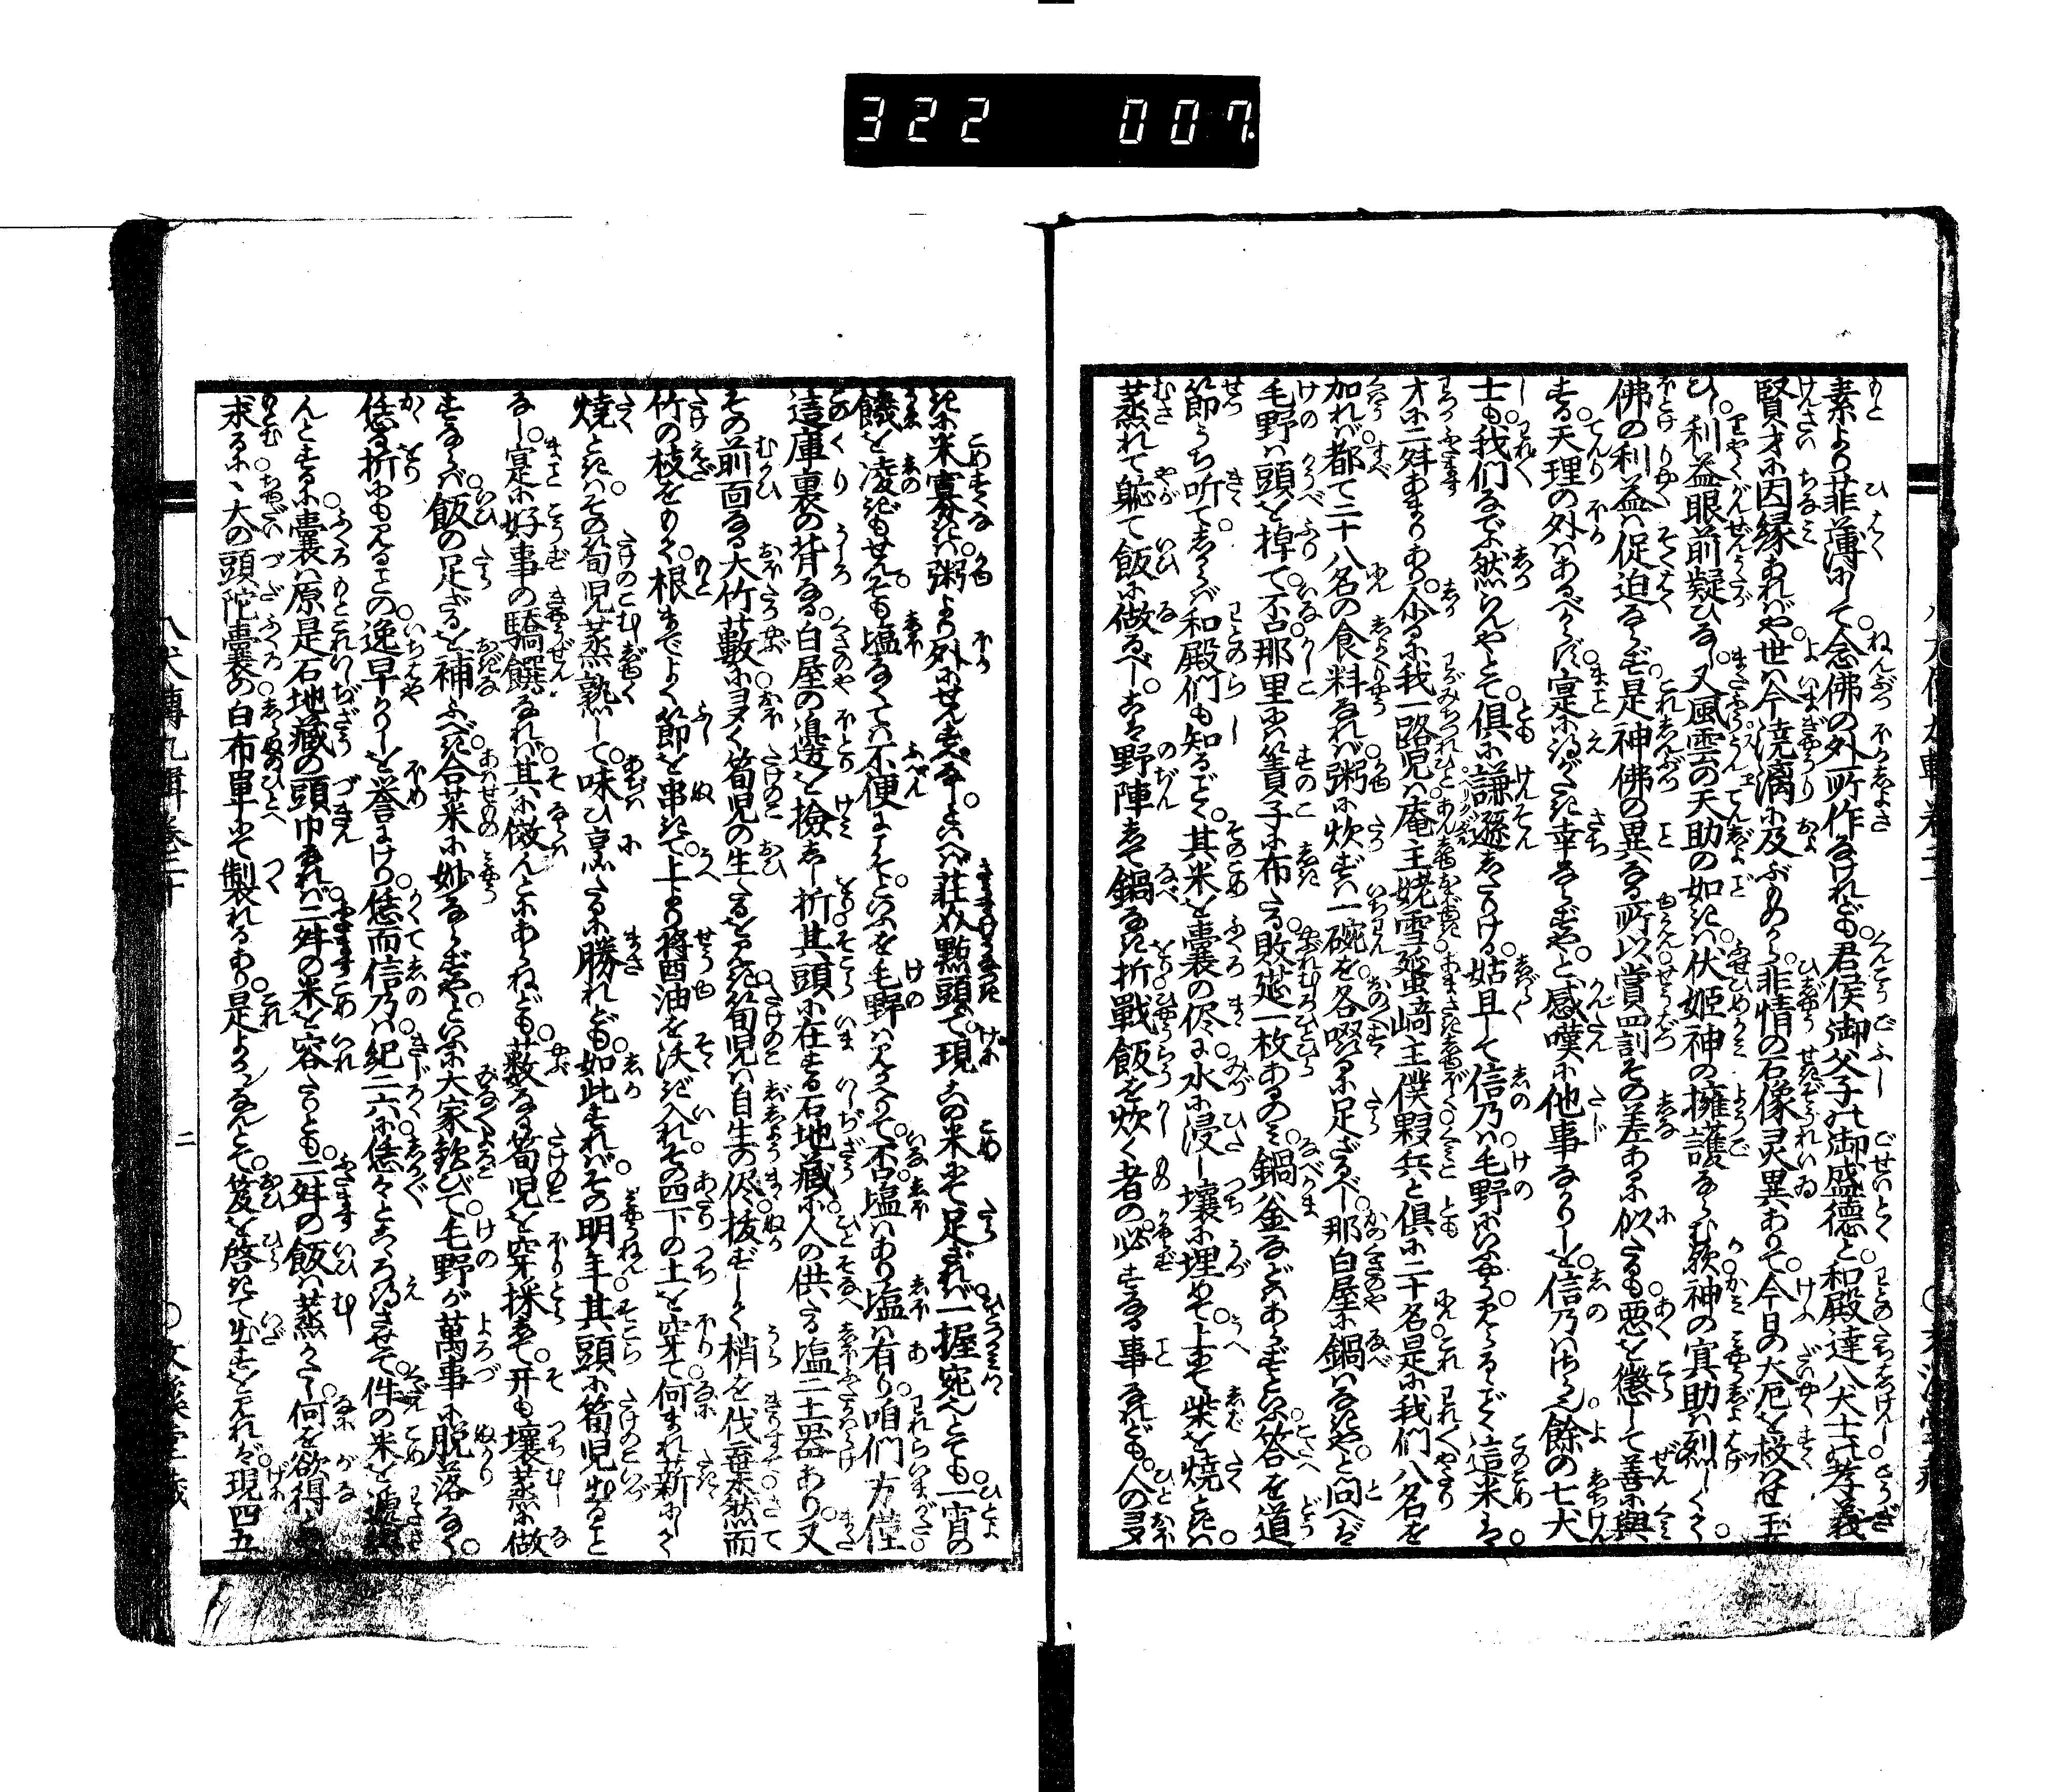 322 007
素より菲薄にして念佛の外所作なけれども君侯御父子の御盛徳と和殿達八犬士の孝義
賢才に因縁あればや世は今澆漓に及ぶものから非情の石像灵異ありて今日の大厄を救はせ玉
ひし利益眼前疑ひなし又風雲の天助の如きは伏姫神の擁護ならむ歟神の冥助は烈しくて
佛の利益は促迫ならず是神佛の異なる所以賞罰その差あるに似たるも悪を懲して善に與
する天理の外はあるべからず寔に得がたき幸ならずやと感嘆に他事なかりしを信乃はさら也餘の七犬
士も我們なでふ然らんやとて倶に謙遜したりける姑且して信乃は毛野にいふやう見らるゝごとく這米は
才に二舛あまりあり尒るに我一路児は庵主姥雪蜑崎主僕夥兵と倶に二十名是に我們八名を
加れば都て二十八名の食料なれば粥に炊ずは一碗を各啜るに足ざるべし那白屋に鍋はなきやと問へば
毛野は頭を掉て否那里には簀子に布たる敗莚一枚あるのみ鍋釜などはあらずといふ答を道
節うち听てしからば和殿們も知るごとく其米を嚢の侭に水に浸し壤に埋めて上にて柴を焼ときは
蒸れて軈て飯に做るべしこは野陣にて鍋なき折戰飯を炊く者の必する事なれども人のヨタ
きに米寡きは粥より外にせんすべなしといへば荘介點頭て現この米にて足ざれば一握宛へとても一宵の
饑を凌ぎもせんそも塩なくては不便によしといふを毛野は見かへりて否塩はあり塩は有り咱們方僅
這庫裏の背なる白屋の邊を撿せし折其頭に在する石地蔵に人の供たる塩二土器あり又
その前面なる大竹藪にヨタく筍児の生たるを見き筍児は自生の侭抜ずしく梢を伐棄然而
竹の枝をもく根までよく節を串きて上より醤油を沃ぎ入れその四下の土を穿て何まれ薪にしく
焼ときはその筍児蒸熟して味ひ烹たるに勝れども如此すればその明年其頭に筍児出ること
なし寔に好事の驕饌なれば其に倣んとにあらねども藪なる筍児を穿採にて开も壤蒸に做
すならば飯の足ざるを補ふべき合菜に妙ならずやといふに大家歓びて毛野が萬事に脱落なく
恁る折にも見ることの逸早かりしを誉にけり恁而信乃は紀二六に恁々とこゝろ得させて件の米を遞
んとするに嚢は原是石地蔵の頭巾なれば二舛の米を容たりとも二舛の飯は蒸がたし何を欲得と
求るに丶大の頭陀嚢の白布單にて製れるあり是よからんとて笈を啓きて出すを見れば現四五
八犬傳九輯巻三十
二